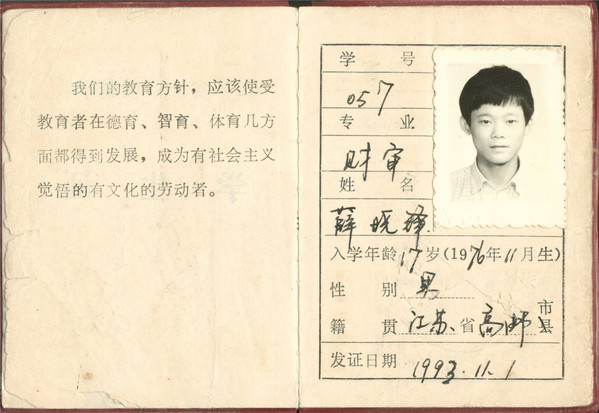 我们的教育方针,应该使受
教育者在德育、智育、体育几方
面都得到发展,成为有社会主义
觉悟的有文化的劳动者。
学 号
057
专 业
财审
姓 名
薛晓
入学年龄17岁(1976年11月生)
性 别 男
籍 贯 江苏省高邮市县
发证日期 1993.11.1